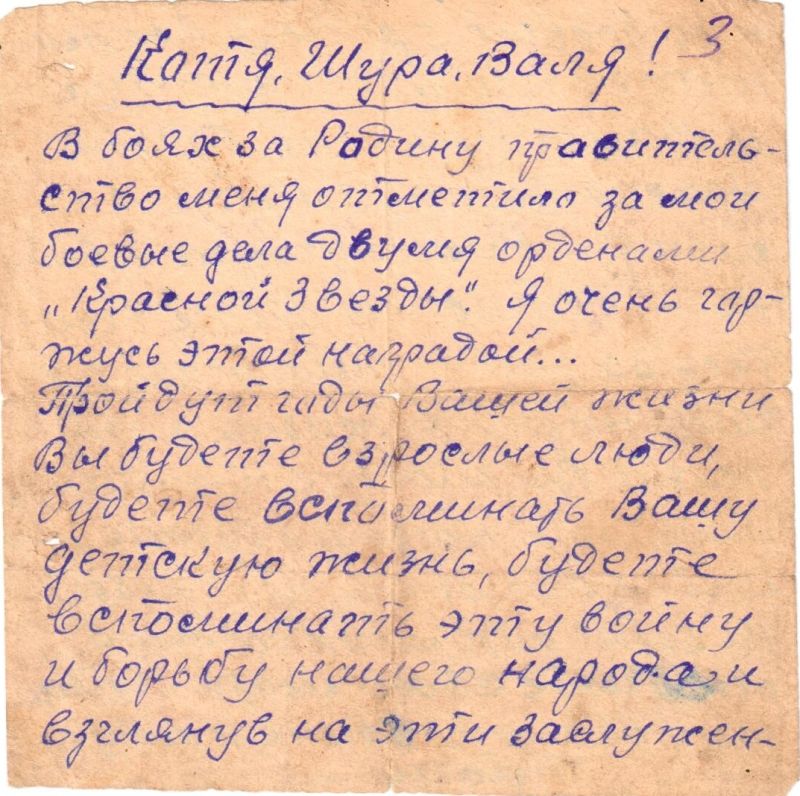 3
Катя, Шура, Валя!
В боях за Родину правитель-
ство меня отметило за мои
боевые дела двумя орденами
„Красной Звезды". Я очень гор-
жусь этой наградой...
Пройдут годы Вашей жизни
Вы будете взрослые люди,
будете вспоминать Вашу
детскую жизнь, будете
вспоминать эту войну
и борьбу нашего народа и
взглянув на эти заслужен-